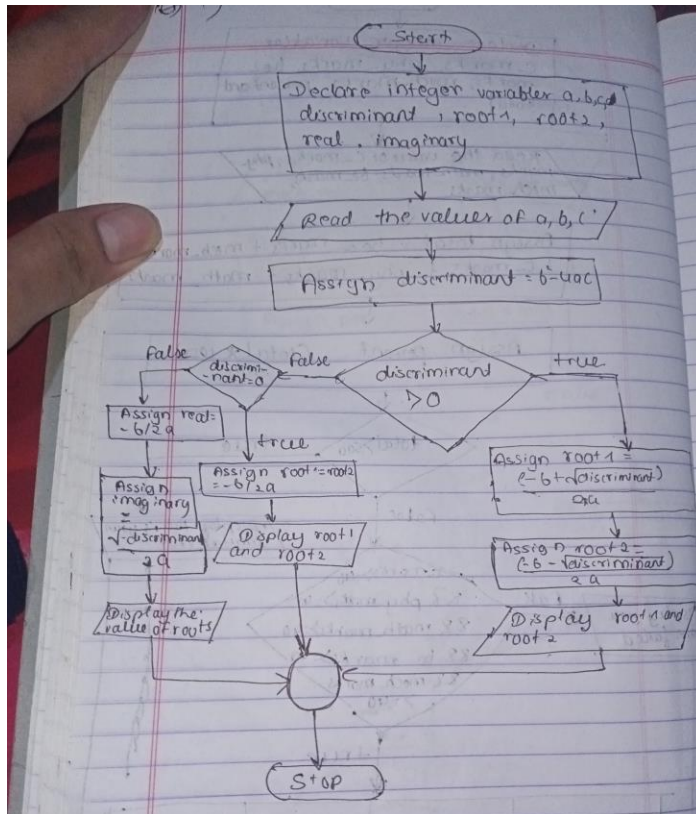 Start
Declare integer variables a,b,c,d
discriminant, root1, root2,
real. imaginary
Read the values of a,b,c
Assign discriminant = b²-4ac
discriminant
>0
true
False
discrimi-
-nant=0
False
true
Assign real=
-b/2a
Assign
imaginary
=
√-discriminant
2a
Display the
value of roots
Assign root1=root2
=-b/2a
Display root1
and root2
Assign root1=
(-b+√discriminant)
2a
Assign root2=
(-b-√discriminant)
2a
Display root1 and
root2
Stop